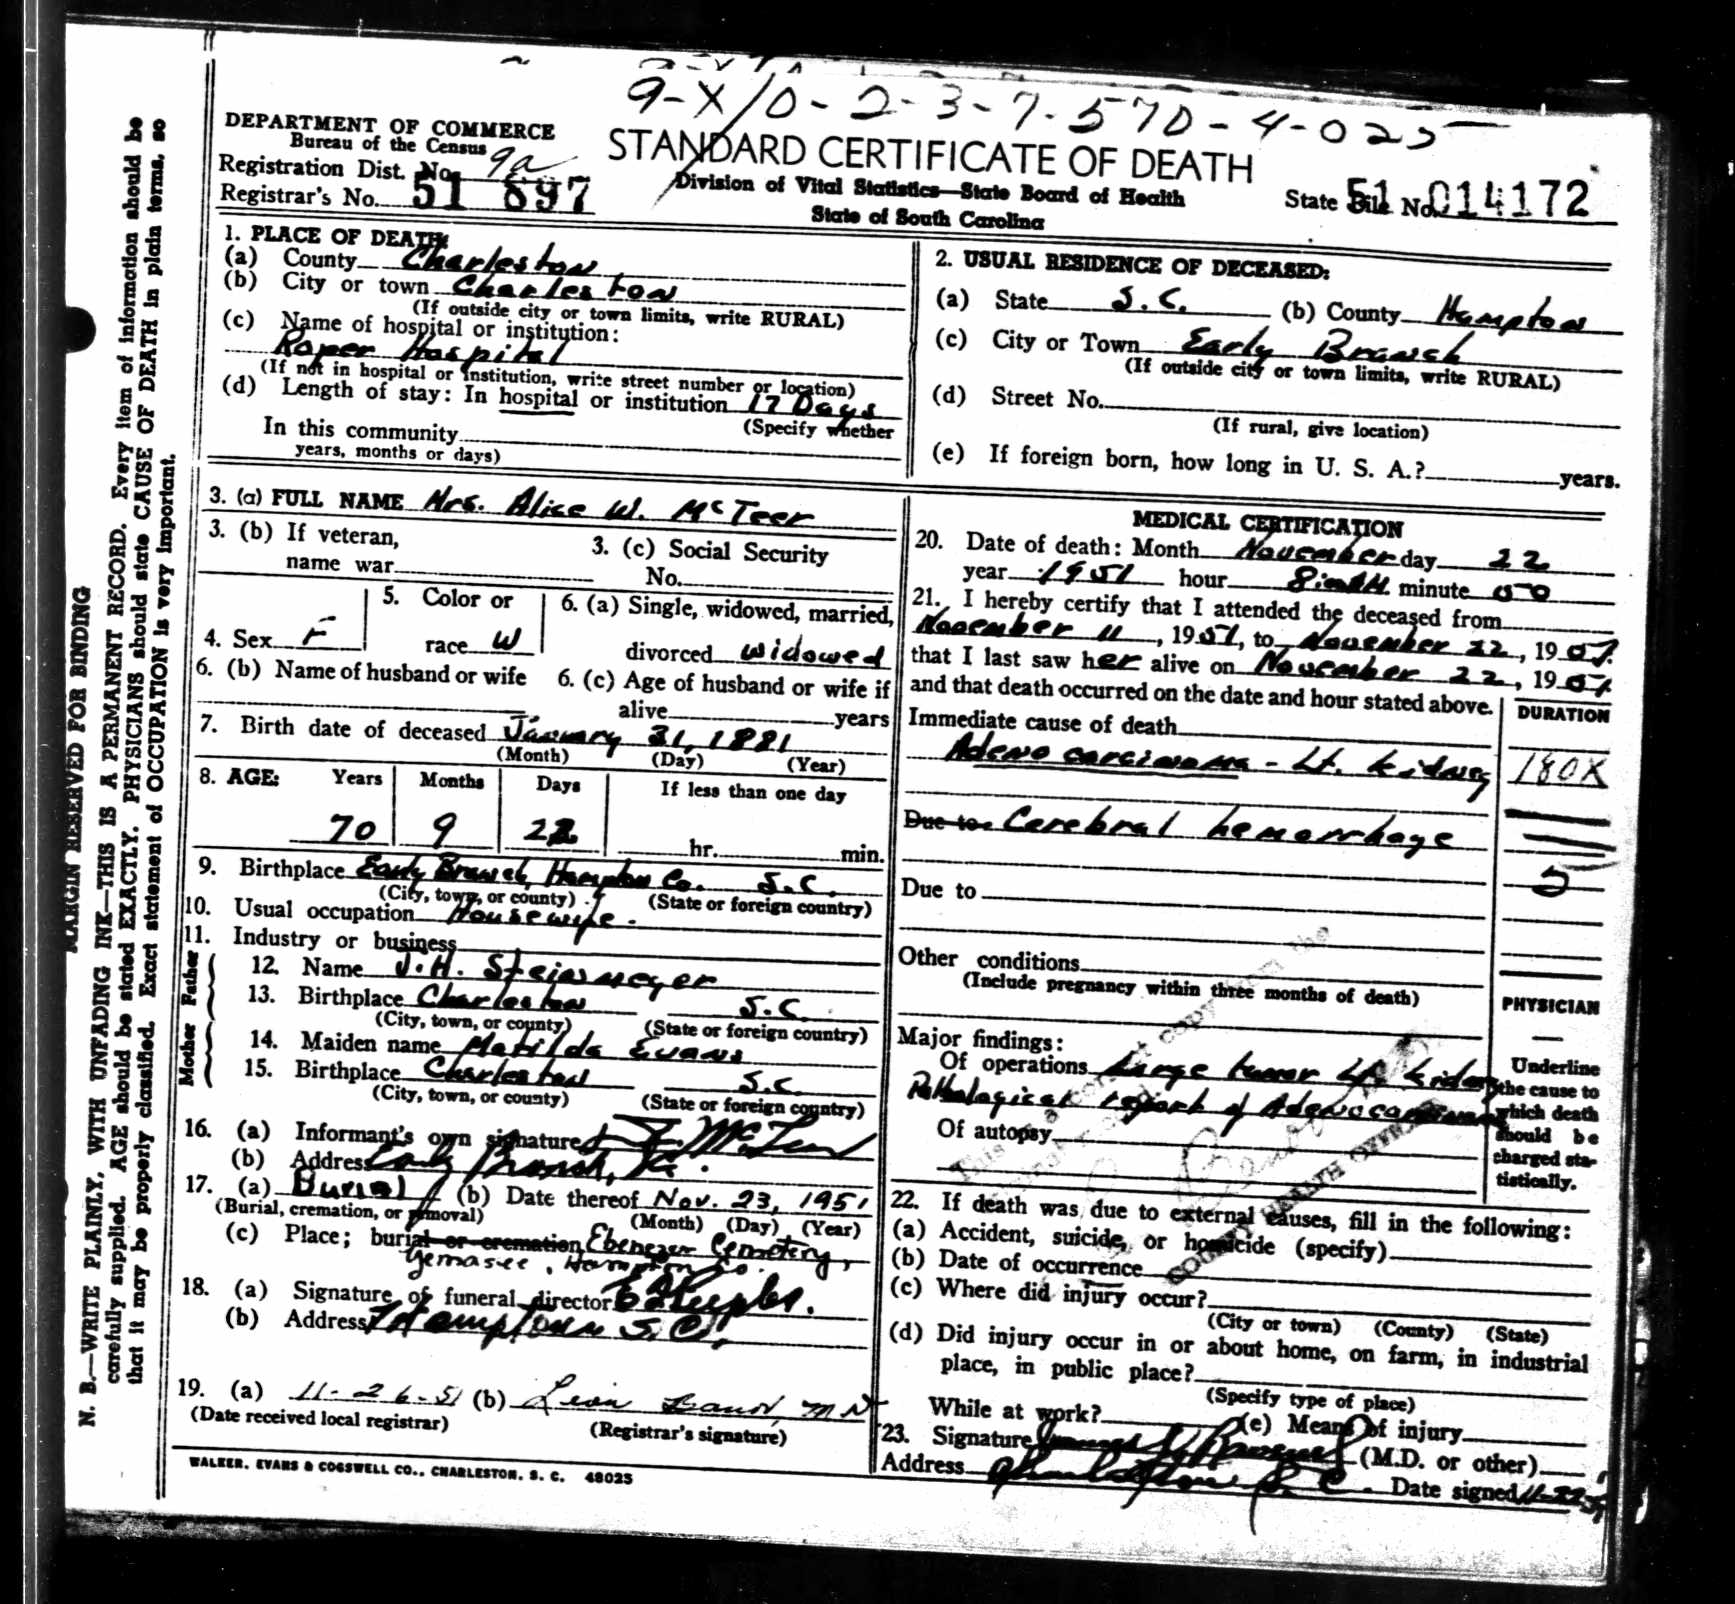 9-X/0-2-3-7-570-4-025
DEPARTMENT OF COMMERCE
Bureau of the Census
Registration Dist. No. 9a
Registrar's No. 51 897
STANDARD CERTIFICATE OF DEATH
Division of Vital Statistics—State Board of Health
State of South Carolina
State File No. 51 014172
1. PLACE OF DEATH:
(a) County Charleston
(b) City or town Charleston
(If outside city or town limits, write RURAL)
(c) Name of hospital or institution:
Roper Hospital
(If not in hospital or institution, write street number or location)
(d) Length of stay: In hospital or institution 17 Days
(Specify whether
In this community
years, months or days)
2. USUAL RESIDENCE OF DECEASED:
(a) State S.C. (b) County Hampton
(c) City or Town Early Branch
(If outside city or town limits, write RURAL)
(d) Street No.
(If rural, give location)
(e) If foreign born, how long in U. S. A.? years.
3. (a) FULL NAME Mrs. Alice W. McTeer
3. (b) If veteran,
name war
3. (c) Social Security
No.
4. Sex F
5. Color or
race W
6. (a) Single, widowed, married,
divorced widowed
6. (b) Name of husband or wife
6. (c) Age of husband or wife if
alive years
7. Birth date of deceased January 31, 1881
(Month) (Day) (Year)
8. AGE: Years Months Days If less than one day
70 9 22 hr. min.
9. Birthplace Early Branch, Hampton Co. S.C.
(City, town, or county) (State or foreign country)
10. Usual occupation Housewife.
11. Industry or business
Father
12. Name J.H. Steinmeyer
13. Birthplace Charleston S.C.
(City, town, or county) (State or foreign country)
Mother
14. Maiden name Matilda Evans
15. Birthplace Charleston S.C.
(City, town, or county) (State or foreign country)
16. (a) Informant's own signature McTeer
(b) Address Early Branch, S.C.
17. (a) Burial (b) Date thereof Nov. 23, 1951
(Burial, cremation, or removal) (Month) (Day) (Year)
(c) Place; burial or cremation Ebenezer Cemetery,
Yemassee, Hampton Co.
18. (a) Signature of funeral director Peeples.
(b) Address Hampton S.C.
19. (a) 11-26-51 (b) Leon Banov, MD
(Date received local registrar) (Registrar's signature)
WALKER, EVANS & COGSWELL CO., CHARLESTON, S. C. 48025
MEDICAL CERTIFICATION
20. Date of death: Month November day 22
year 1951 hour 8: A.M. minute 50
21. I hereby certify that I attended the deceased from
November 11, 1951, to November 22, 1951.
that I last saw her alive on November 22, 1951
and that death occurred on the date and hour stated above.
DURATION
Immediate cause of death
Adenocarcinoma - Lt. kidney 180X
Due to. Cerebral hemorrhage
Due to
Other conditions
(Include pregnancy within three months of death)
PHYSICIAN
Major findings:
Of operations Large tumor Lt. kidney
Pathological report of Adenocarcinoma
Of autopsy
Underline
the cause to
which death
should be
charged sta-
tistically.
22. If death was due to external causes, fill in the following:
(a) Accident, suicide, or homicide (specify)
(b) Date of occurrence
(c) Where did injury occur?
(City or town) (County) (State)
(d) Did injury occur in or about home, on farm, in industrial
place, in public place?
(Specify type of place)
While at work? (e) Means of injury
23. Signature James (M.D. or other)
Address Charleston S.C. Date signed 11-22-51
COUNTY HEALTH OFFICER
MARGIN RESERVED FOR BINDING
N. B.—WRITE PLAINLY, WITH UNFADING INK—THIS IS A PERMANENT RECORD. Every item of information should be
carefully supplied. AGE should be stated EXACTLY. PHYSICIANS should state CAUSE OF DEATH in plain terms, so
that it may be properly classified. Exact statement of OCCUPATION is very important.